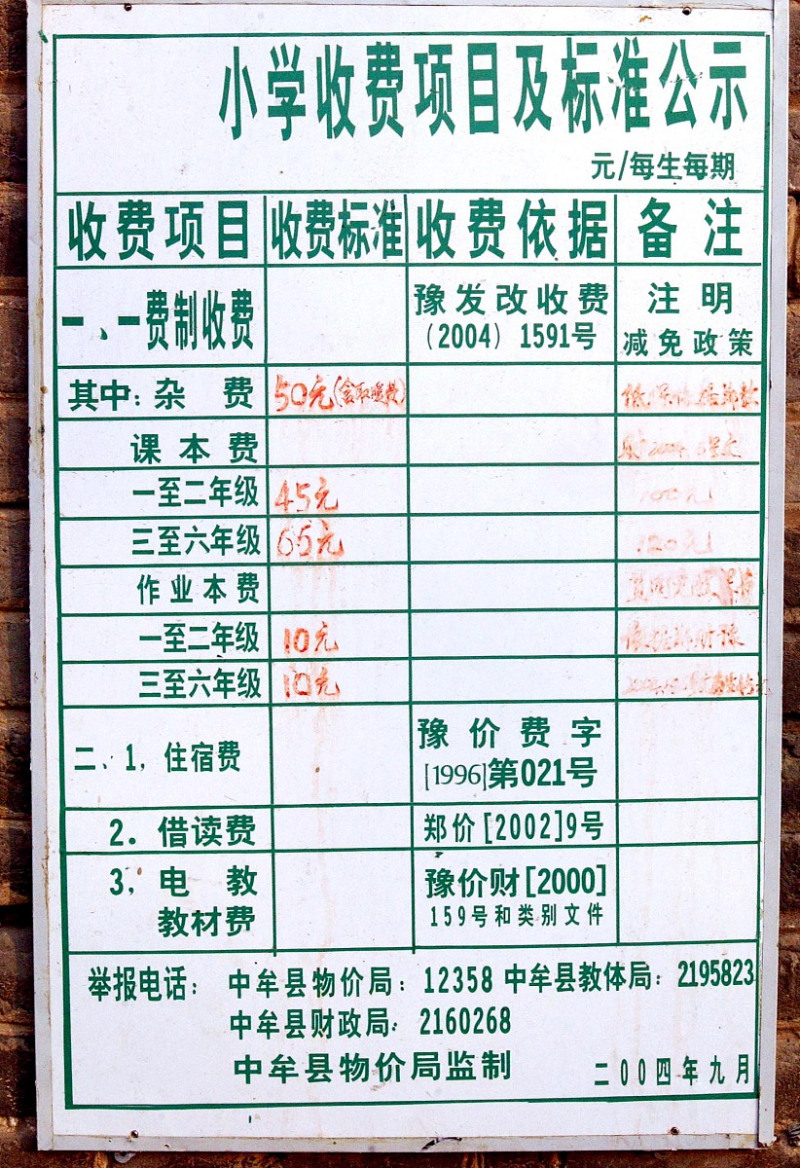 小学收费项目及标准公示
元/每生每期
收费项目 收费标准 收费依据 备注
一、一费制收费 豫发改收费 注明
(2004) 1591号 减免政策
其中: 杂费 50元
课本费
一至二年级 45元 100元
三至六年级 65元 120元
作业本费
一至二年级 10元
三至六年级 10元
豫价费字
二、1, 住宿费 [1996]第021号
2. 借读费 郑价[2002]9号
3, 电教 豫价财[2000]
教材费 159号和类别文件
举报电话: 中牟县物价局: 12358 中牟县教体局: 2195823
中牟县财政局: 2160268
中牟县物价局监制 二00四年九月